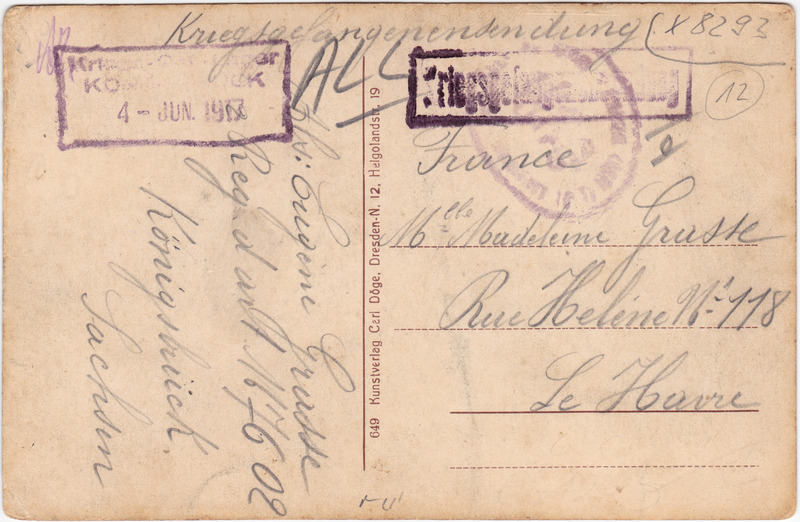 Kriegsgefangenensendung (X 8293
ALL
4 - JUN. 1917
Kriegsgefangenensendung
12
France
Mlle Madeleine Grasse
Rue Heléne No 118
Le Havre
649 Kunstverlag Carl Döge, Dresden-N. 12, Helgolandstr. 19
Eugene Grasse
Reg d'art No 7602
Königsbrück
Sachsen